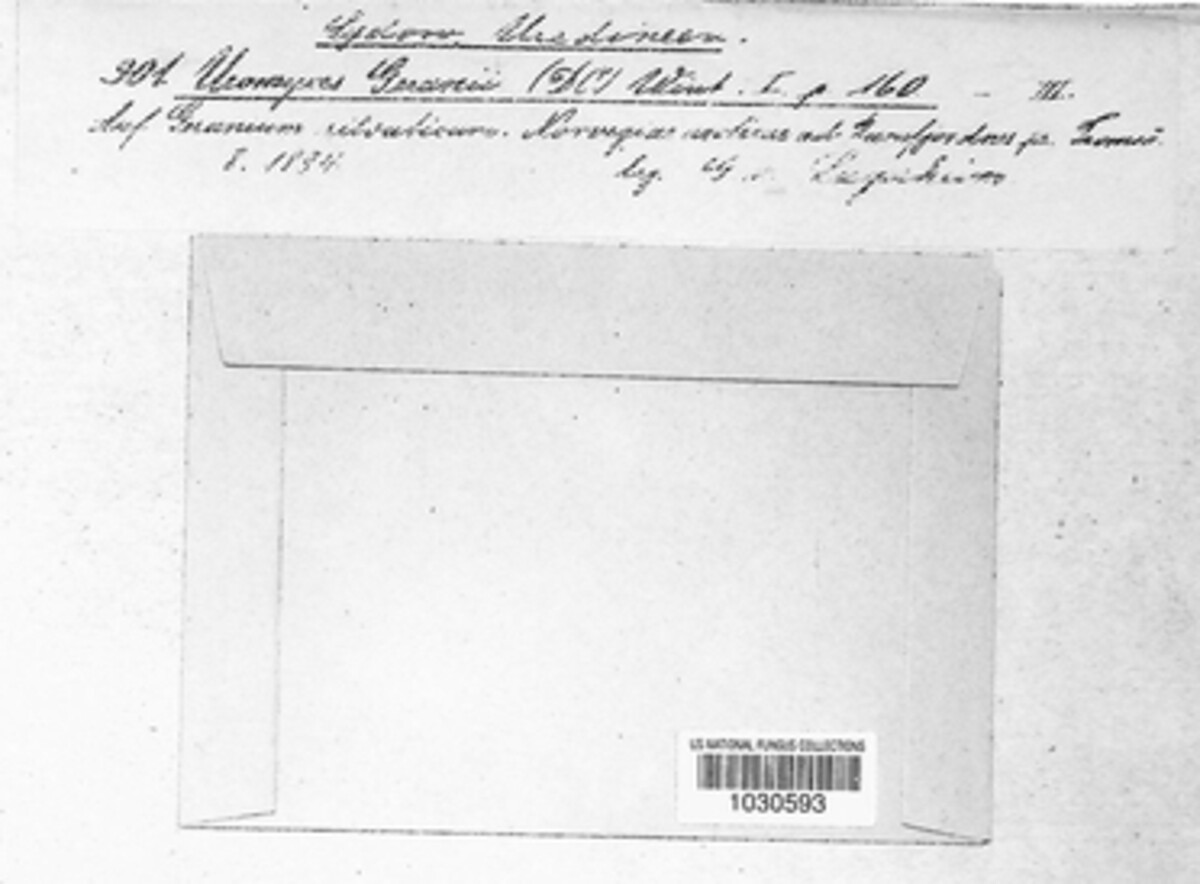 Sydow, Uredineen.
901 Uromyces Geranii (DC) Wint. I. p. 160 – III.
Auf Geranium silvaticum. Norvegiae arcticae ad pr. Tromsö.
8. 1894. leg. G v. Lagerheim
US NATIONAL FUNGUS COLLECTIONS
1030593